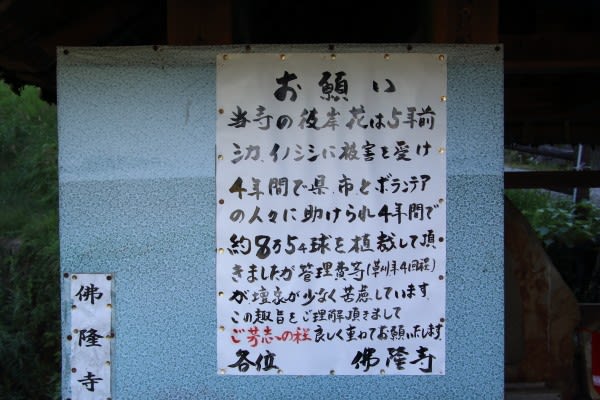 お願い
当寺の彼岸花は5年前
シカ、イノシシに被害を受け
4年間で県、市、とボランテア
の人々に助けられ4年間で
約8万5千球を植栽して頂
きましたが管理費等(草刈年4回程)
が、壇家が少なく苦慮しています。
この趣旨をご理解頂きまして
ご芳志の程良しく重ねてお願いします。
各位 佛隆寺
佛隆寺